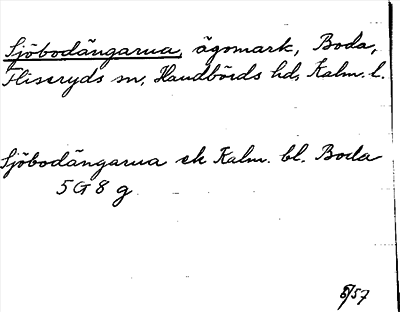 Sjöbodängarna, ägomark, Boda,
Fliseryds sn, Handbörds hd, Kalm. l.
Sjöbodängarna ek Kalm. bl. Boda
5 G 8 g
8/57